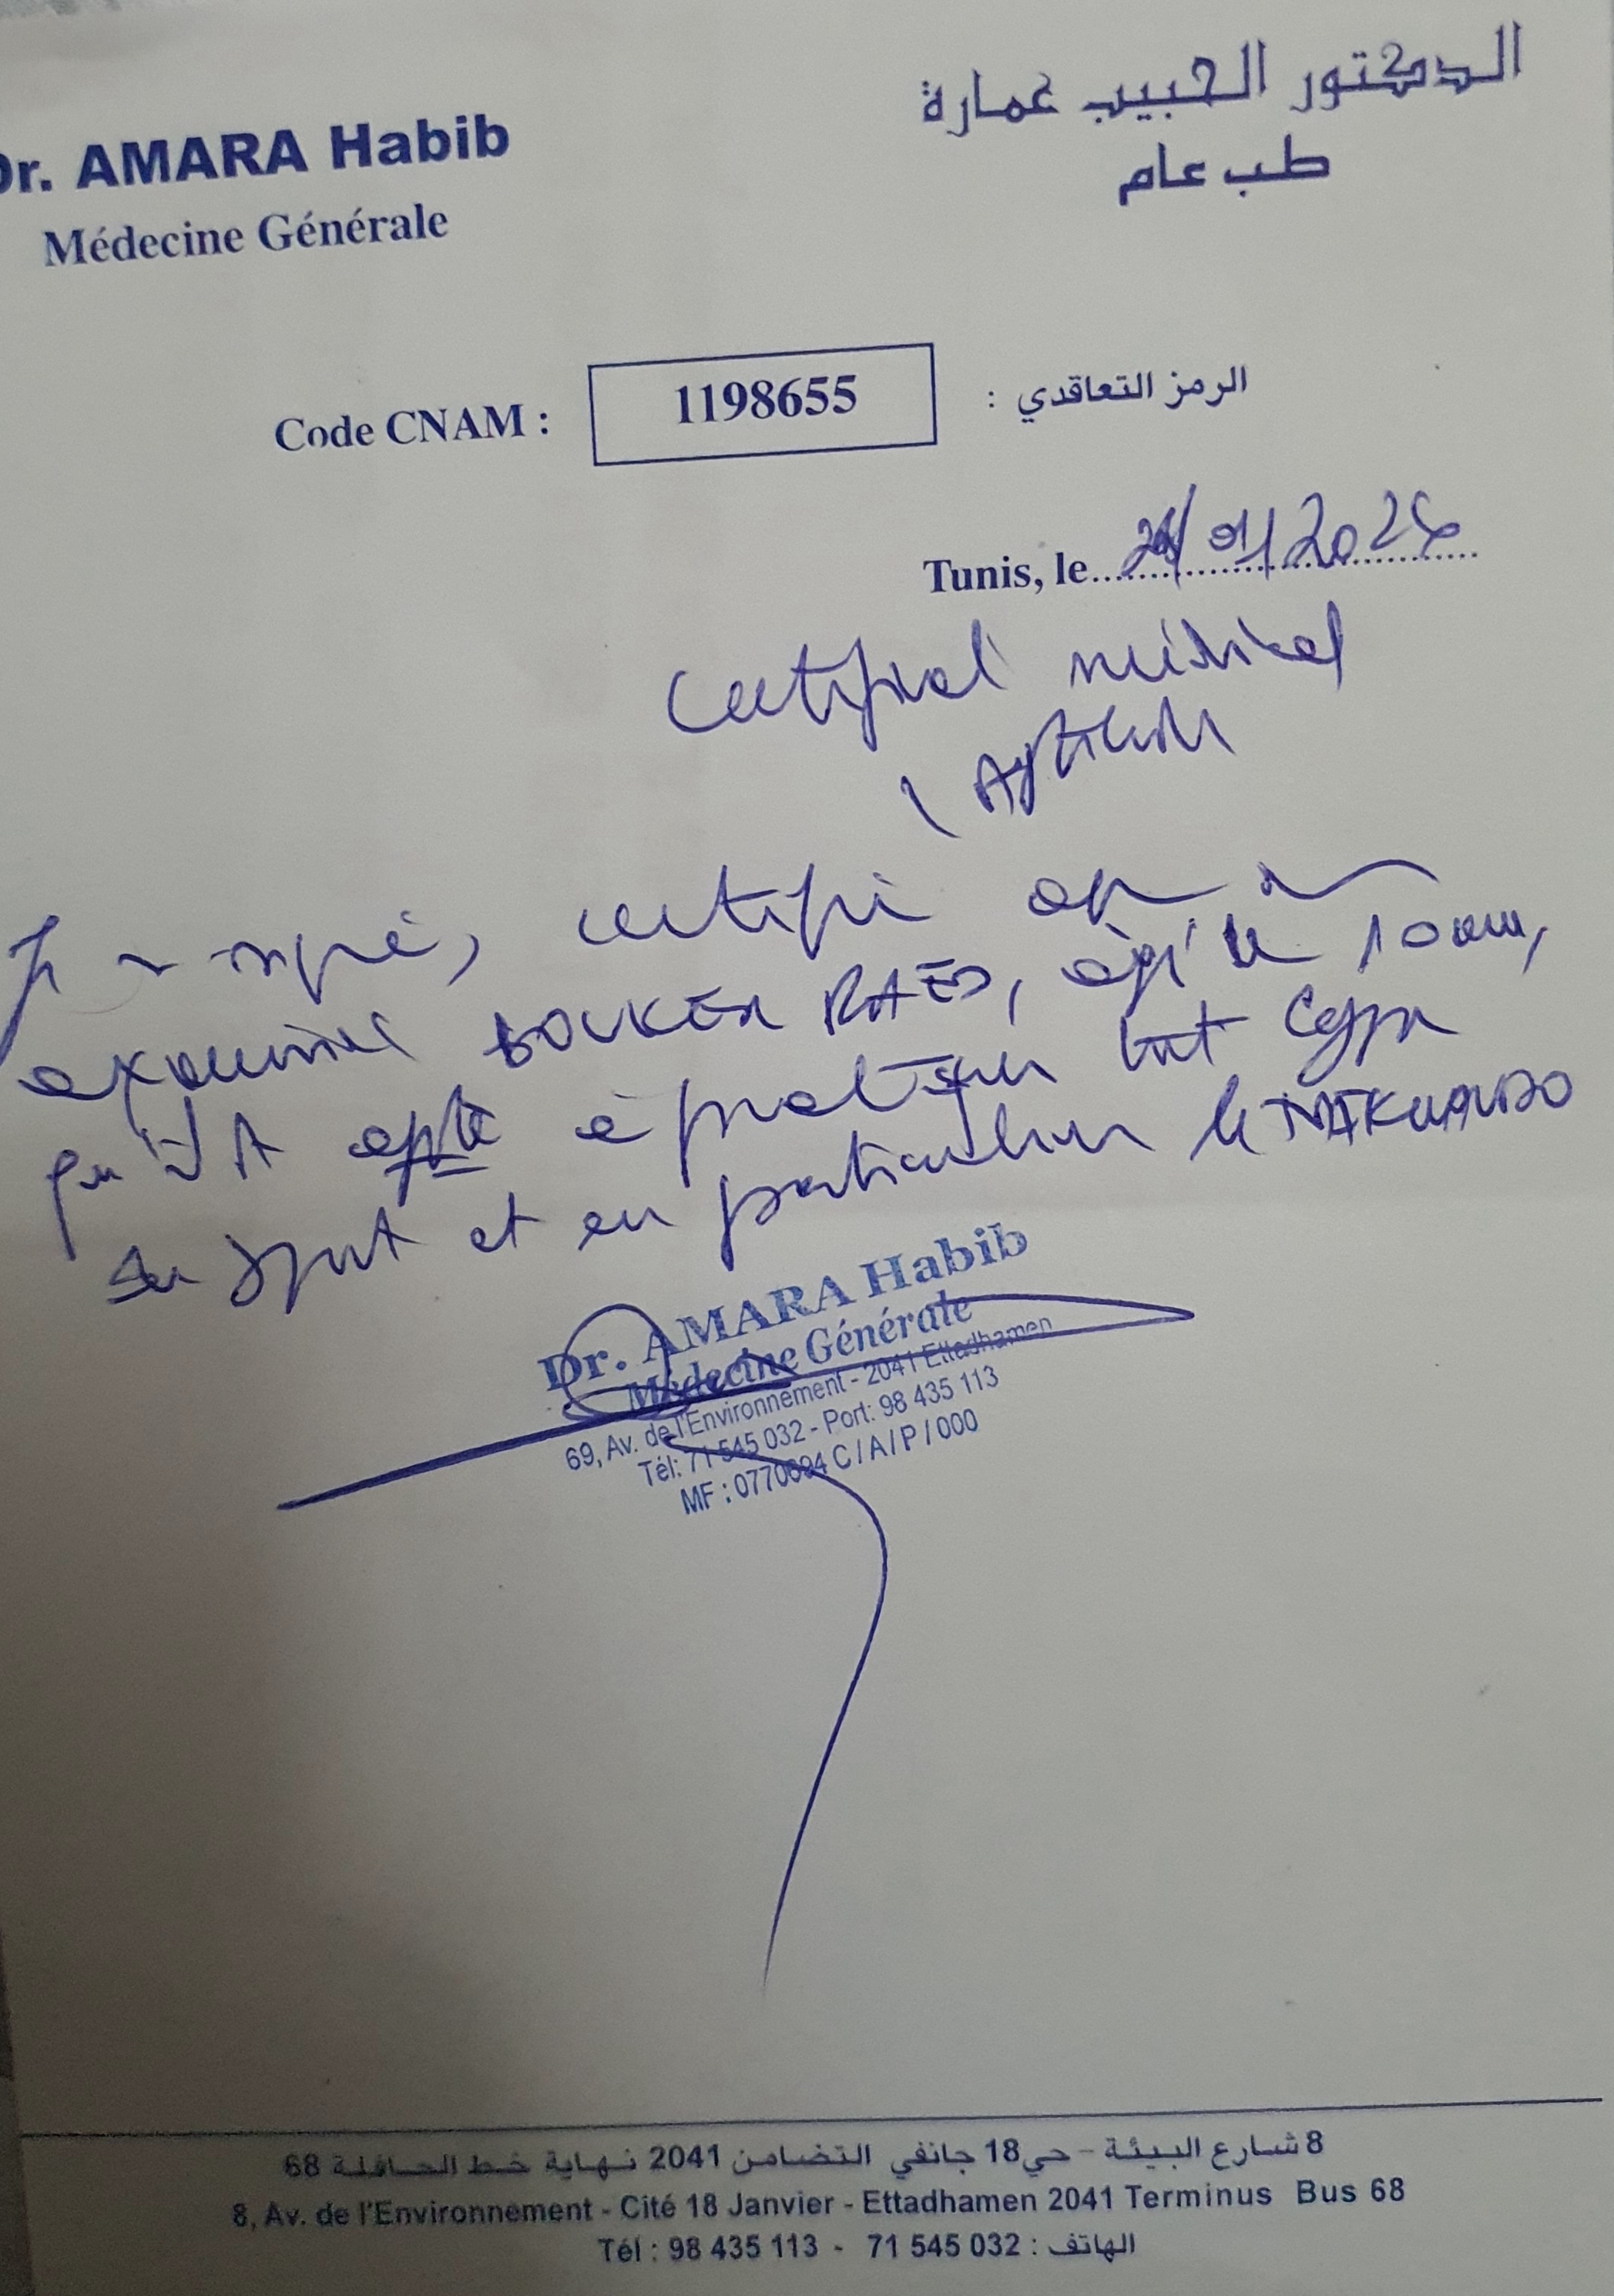 Dr. AMARA Habib
Médecine Générale
الدكتور الحبيب عمارة
طب عام
Code CNAM : 1198655 الرمز التعاقدي :
Tunis, le /01/2026
Certificat médical
Je , certifie
examiner BOUKER RAED, âgé de 10 ans,
qu'il A apte à pratiquer tout
sport et en particulier le TAEKWANDO
Dr. AMARA Habib
Médecine Générale
69, Av. de l'Environnement - 2041 Ettadhamen
Tél: 71 545 032 - Port: 98 435 113
MF : C / A / P / 000
8 شارع البيئة - حي 18 جانفي التضامن 2041 نهاية خط الحافلة 68
8, Av. de l'Environnement - Cité 18 Janvier - Ettadhamen 2041 Terminus Bus 68
Tél : 98 435 113 - 71 545 032 : الهاتف